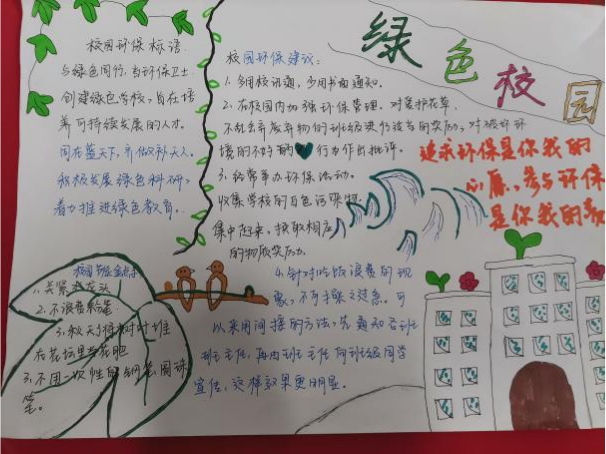 绿色校园
校园环保标语
与绿色同行,当环保卫士
创建绿色学校,旨在培
养可持续发展的人才。
同在蓝天下,齐做补天人。
积极发展绿色科研,
着力推进绿色教育。
校园环保建议:
1、多用校讯通,少用书面通知。
2、在校园内加强环保管理,对爱护花草、
不乱丢弃废弃物的班级给予适当的奖励,对破坏环
境的不好的行为作出批评。
3、经常举办环保活动。
收集学校的白色污染物
集中起来,换取相应
的物质奖励。
4、针对吃饭浪费的现
象,不可操之过急。可
以采用间接的方法,先通知各班
班主任,再由班主任向班级同学
宣传,这样效果更明显。
追求环保是你我的
心愿,参与环保
是你我的
校园节能金点子
1、关紧水龙头
2、不浪费粉笔
3、秋天将树叶堆
在花坛里当花肥
3、不用一次性的钢笔、圆珠
笔。